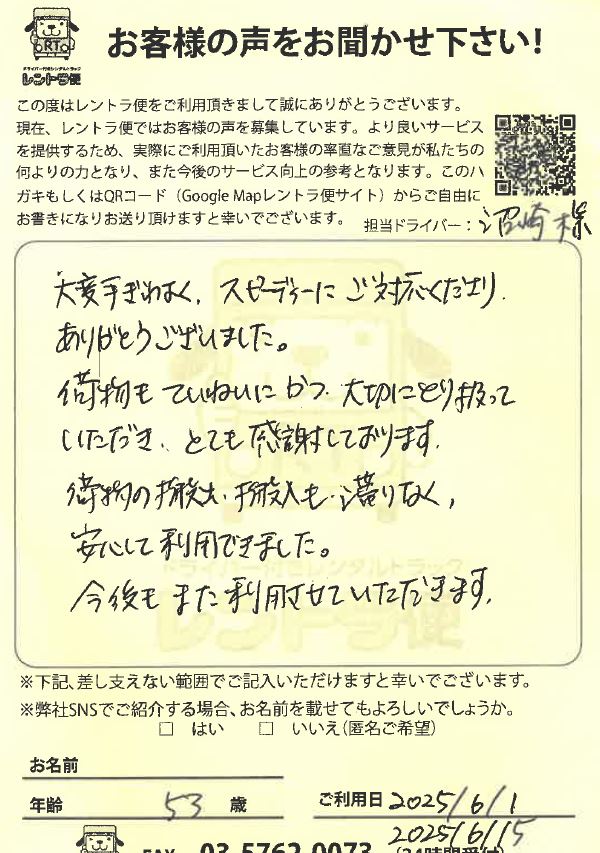 RT
ドライバー付きレンタルトラック
レントラ便
お客様の声をお聞かせ下さい!
この度はレントラ便をご利用頂きまして誠にありがとうございます。
現在、レントラ便ではお客様の声を募集しています。より良いサービス
を提供するため、実際にご利用頂いたお客様の率直なご意見が私たちの
何よりの力となり、また今後のサービス向上の参考となります。このハ
ガキもしくはQRコード（Google Mapレントラ便サイト）からご自由に
お書きになりお送り頂けますと幸いでございます。
担当ドライバー：沼崎様
大変手ぎわよく、スピーディーにご対応くださり、
ありがとうございました。
荷物もていねいにかつ、大切にとり扱って
いただき、とても感謝しております。
荷物の搬出、搬入も、滞りなく、
安心して利用できました。
今後もまた利用させていただきます。
ドライバー付きレンタルトラック
レントラ便
※下記、差し支えない範囲でご記入いただけますと幸いでございます。
※弊社SNSでご紹介する場合、お名前を載せてもよろしいでしょうか。
□ はい □ いいえ（匿名ご希望）
お名前
年齢 53 歳
ご利用日 2025/6/1
2025/6/15
FAX 03-5762-0073 (24時間受付)